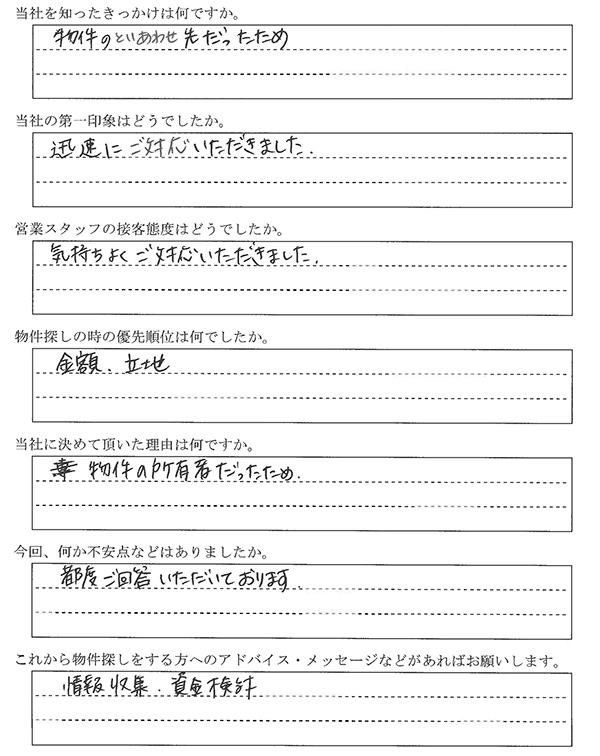 当社を知ったきっかけは何ですか。
物件のといあわせ先だったため
当社の第一印象はどうでしたか。
迅速にご対応いただきました.
営業スタッフの接客態度はどうでしたか。
気持ちよくご対応いただきました.
物件探しの時の優先順位は何でしたか。
金額、立地
当社に決めて頂いた理由は何ですか。
物件の所有者だったため.
今回、何か不安点などはありましたか。
都度ご回答いただいております.
これから物件探しをする方へのアドバイス・メッセージなどがあればお願いします。
情報収集、資金検討